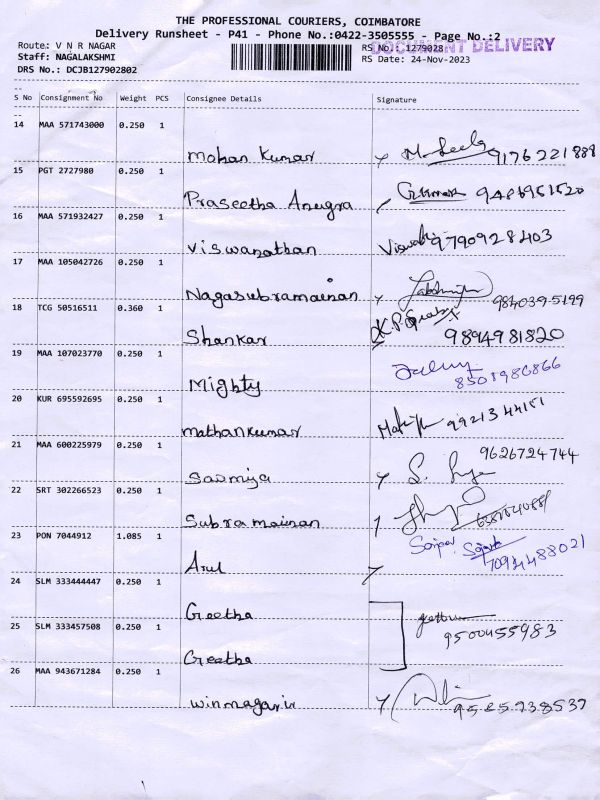 THE PROFESSIONAL COURIERS, COIMBATORE
Delivery Runsheet - P41 - Phone No.:0422-3505555 - Page No.:2
Route: V N R NAGAR
RS No.: 1279028
DOCUMENT DELIVERY
Staff: NAGALAKSHMI
RS Date: 24-Nov-2023
DRS No.: DCJB127902802
S No Consignment No Weight PCS Consignee Details Signature
14 MAA 571743000 0.250 1
Mohan Kumar 9176221888
15 PGT 2727980 0.250 1
Praseetha Anugra
16 MAA 571932427 0.250 1
Viswanathan 9790928403
17 MAA 105042726 0.250 1
Nagasubramainan 984039-5199
18 TCG 50516511 0.360 1
Shankar 9894981820
19 MAA 107023770 0.250 1
Mighty 8501986866
20 KUR 695592695 0.250 1
Mathankumar
21 MAA 600225979 0.250 1
9626724744
Sasmiya
22 SRT 302266523 0.250 1
Subramainan
23 PON 7044912 1.085 1
7094488021
Arul
24 SLM 333444447 0.250 1
Geetha
25 SLM 333457508 0.250 1
9500455983
Geetha
26 MAA 943671284 0.250 1